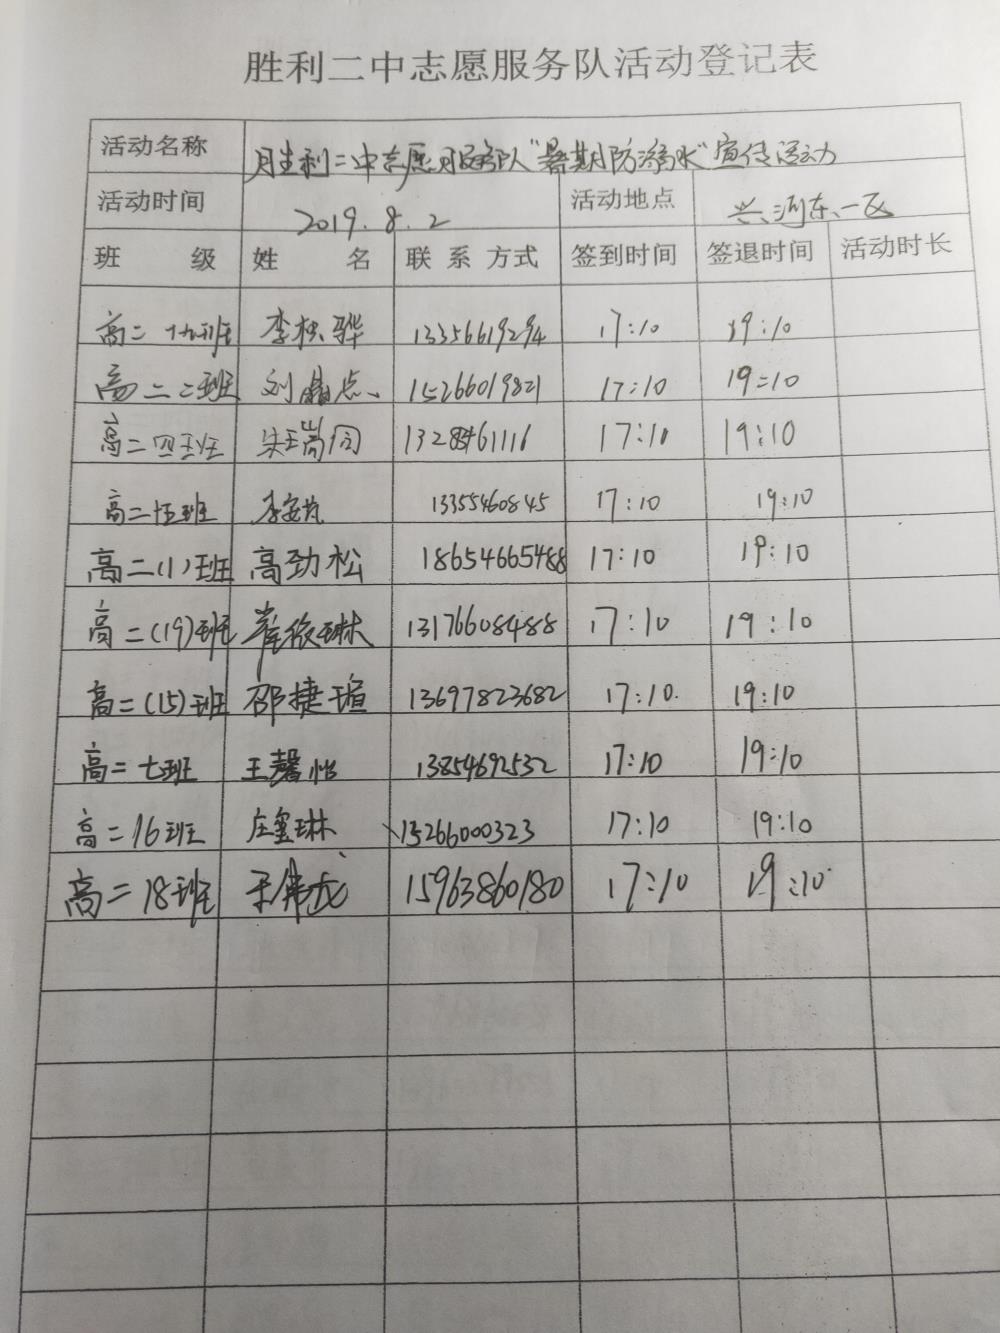 胜利二中志愿服务队活动登记表
活动名称 胜利二中志愿服务队"暑期防溺水"宣传活动
活动时间 2019.8.2 活动地点 兴河东一区
班 级 姓 名 联系方式 签到时间 签退时间 活动时长
高二十九班 李 骅 13356619294 17:10 19:10
高二二班 刘 点 15266019821 17:10 19:10
高二四班 朱 13289461116 17:10 19:10
高二十五班 李安 13355460845 17:10 19:10
高二(1)班 高劲松 18654665488 17:10 19:10
高二(19)班 崔 琳 13176608488 17:10 19:10
高二(15)班 邵捷瑄 13697823682 17:10. 19:10
高二七班 王馨怡 13854692532 17:10 19:10
高二16班 庄玺琳 15266000323 17:10 19:10
高二18班 于伟龙 15963860180 17:10 19:10